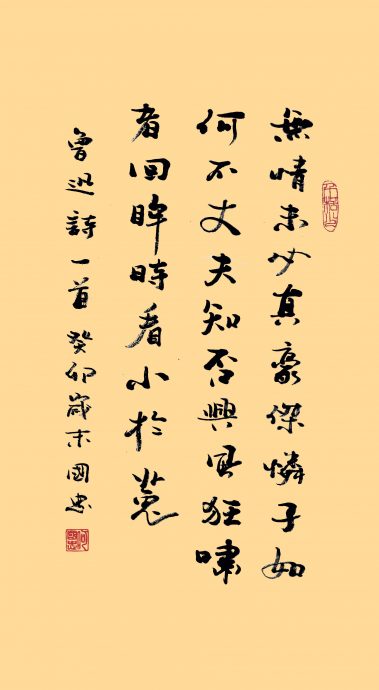 無情未必真豪傑憐子如
何不丈夫知否興風狂嘯
者回眸時看小於菟
魯迅詩一首 癸卯歲末國忠